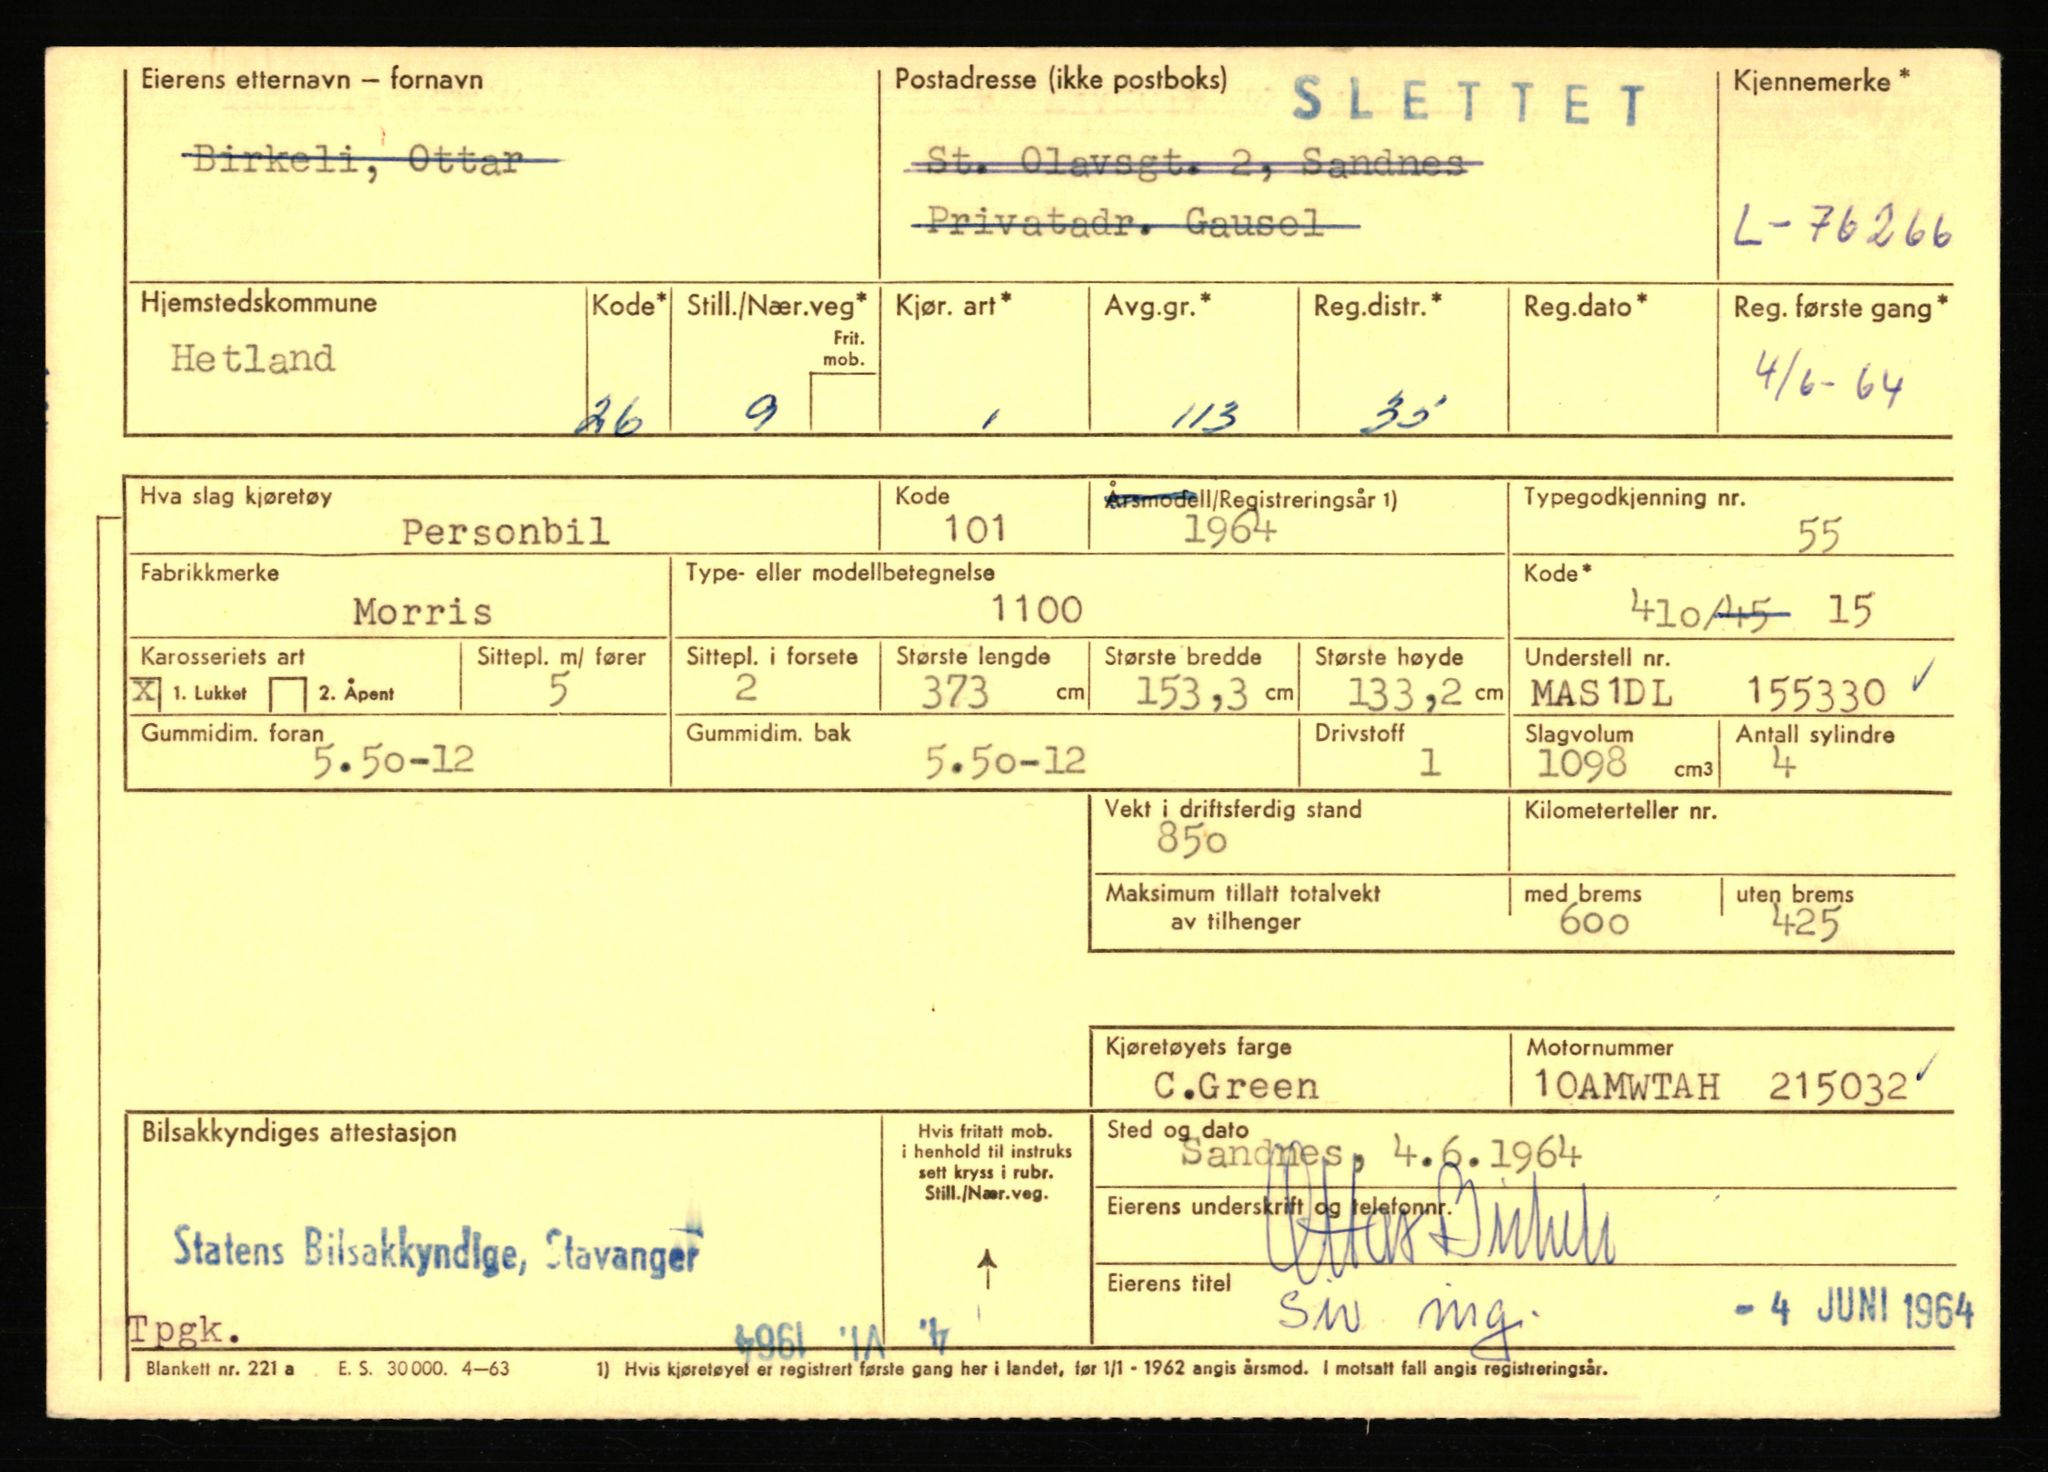 Eierens etternavn – fornavn
Birkeli, Ottar
Postadresse (ikke postboks)
SLETTET
St. Olavsgt. 2, Sandnes
Privatadr. Gausel
Kjennemerke*
L-76266
Hjemstedskommune
Hetland
Kode*
26
Still./Nær.veg*
Frit.
mob.
9
Kjør. art*
1
Avg.gr.*
113
Reg.distr.*
35
Reg.dato*
Reg. første gang*
4/6-64
Hva slag kjøretøy
Personbil
Kode
101
Årsmodell/Registreringsår 1)
1964
Typegodkjenning nr.
55
Fabrikkmerke
Morris
Type- eller modellbetegnelse
1100
Kode*
410/45 15
Karosseriets art
X 1. Lukket 2. Åpent
Sittepl. m/ fører
5
Sittepl. i forsete
2
Største lengde
373 cm
Største bredde
153,3 cm
Største høyde
133,2 cm
Understell nr.
MAS1DL 155330 ✓
Gummidim. foran
5.50-12
Gummidim. bak
5.50-12
Drivstoff
1
Slagvolum
1098 cm3
Antall sylindre
4
Vekt i driftsferdig stand
850
Kilometerteller nr.
Maksimum tillatt totalvekt
av tilhenger
med brems
600
uten brems
425
Kjøretøyets farge
C.Green
Motornummer
10AMWTAH 215032 ✓
Bilsakkyndiges attestasjon
Statens Bilsakkyndige, Stavanger
Tpgk.
4. VI. 1964
Hvis fritatt mob.
i henhold til instruks
sett kryss i rubr.
Still./Nær.veg.
Sted og dato
Sandnes, 4.6.1964
Eierens underskrift og telefonnr.
Ottar Birkeli
Eierens titel
Siv ing.
- 4 JUNI 1964
Blankett nr. 221 a E. S. 30 000. 4–63 1) Hvis kjøretøyet er registrert første gang her i landet, før 1/1 - 1962 angis årsmod. I motsatt fall angis registreringsår.